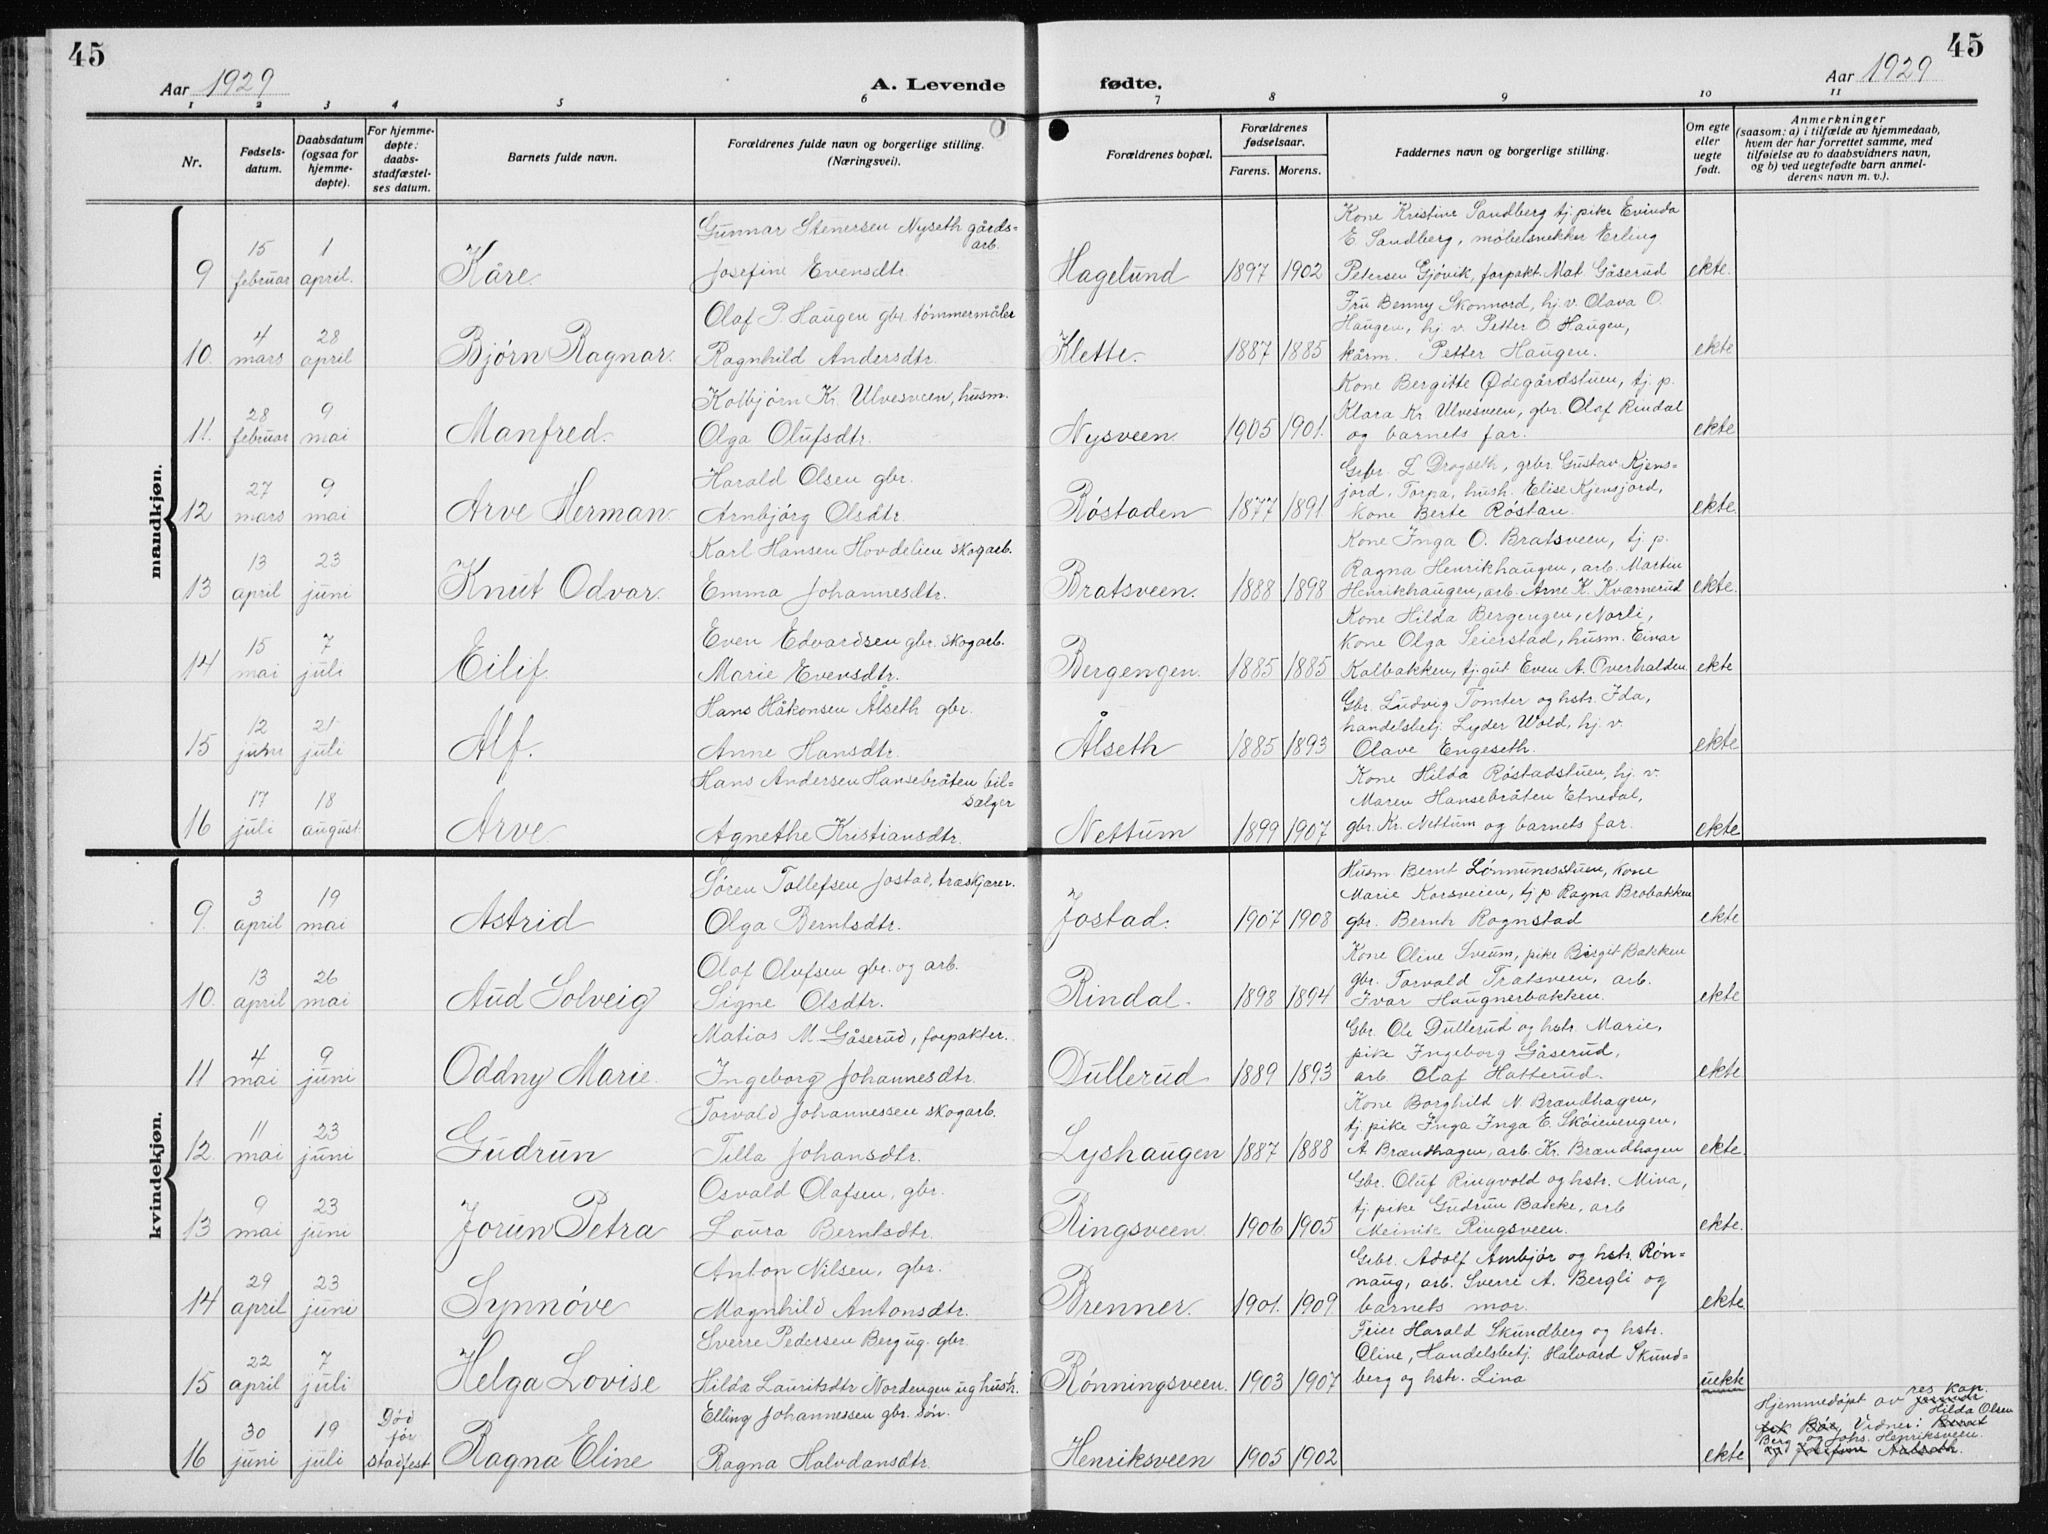 45
45
Aar 1929
A. Levende fødte.
Aar 1929
1 2 3 4 5 6 7 8 9 10 11
Nr.
Fødsels-
datum.
Daabsdatum
(ogsaa for
hjemme-
døpte).
For hjemme-
døpte:
daabs-
stadfæstel-
ses datum.
Barnets fulde navn.
Forældrenes fulde navn og borgerlige stilling.
(Næringsvei).
Forældrenes bopæl.
Forældrenes
fødselsaar.
Farens. Morens.
Faddernes navn og borgerlige stilling.
Om egte
eller
uegte
født.
Anmerkninger
(saasom: a) i tilfælde av hjemmedaab,
hvem der har forrettet samme, med
tilføielse av to daabsvidners navn,
og b) ved uegtefødte barn anmel-
derens navn m. v.).
mandkjøn.
Gunnar Stenersen Nyseth gårds=
arb.
Kone Kristine Sandberg tj. pike Evinda
E. Sandberg, møbelsnekker Erling
9 15 februar 1 april. Kåre. Josefine Evensdtr. Hagelund 1897 1902 Petersen Gjøvik, forpakt. Mat. Gåserud ekte.
Olaf P. Haugen gbr. tømmermåler
Fru Benny Skonnord, hj. v. Olava O.
Haugen, hj. v. Petter O. Haugen,
10. 4 mars 28 april Bjørn Ragnar. Ragnhild Andersdtr. Klette. 1887 1885 kårm. Petter Haugen. ekte
Kolbjørn Kr. Ulvesveen, husm.
Kone Bergitte Ødegårdstuen, tj. p.
Klara Kr. Ulvesveen, gbr. Olaf Rindal
11. 28 februar 9 mai Manfred. Olga Olufsdtr. Nysveen 1905 1901. og barnets far. ekte
Harald Olsen gbr.
Grbr. L Drogseth, grbr. Gustav Kjens-
jord, Torpa, hush. Elise Kjensjord,
12 27 mars 9 mai Arve Herman. Arnbjørg Olsdtr. Røstaden 1877 1891 Kone Berte Røstau. ekte.
Karl Hansen Hovdelien skogarb.
Kone Inga O. Bratsveen, tj. p.
Ragna Henrikhaugen, arb. Martin
13 13 april 23 juni Knut Odvar. Emma Johannesdtr. Bratsveen. 1888 1898 Henrikhaugen, arb. Arne K. Kværnerud ekte.
Even Edvardsen gbr. skogarb.
Kone Hilda Bergengen, Norli,
Kone Olga Seierstad, husm. Einar
14 15 mai 7 juli Eilif. Marie Evensdtr. Bergengen. 1885 1885 Kalbakken, tj. gut Even A. Overhalden ekte
Hans Håkonsen Ålseth gbr.
Gbr. Ludvig Tomter og hstr. Ida,
handelsbetj. Lyder Wold, hj. v.
15 12 juni 21 juli Alf. Anne Hansdtr. Ålseth 1885 1893 Olave Engeseth. ekte
Hans Andersen Hansebråten bil=
sælger
Kone Hilda Røstadstuen, hj. v.
Maren Hansebråten Etnedal,
16 17 juli 18 august. Arve Agnethe Kristiansdtr. Nettum 1899 1907 gbr. Kr. Nettum og barnets far. ekte
kvindekjøn.
Søren Tollefsen Jostad, træskjærer.
Husm. Bernt Lønmunesstuen, Kone
Marie Korsveien, tj. p. Ragna Brobakken
9. 3 april 19 mai Astrid Olga Berntsdtr. Jostad. 1907 1908 gbr. Bernh Rognstad ekte
Olaf Olufsen gbr. og arb.
Kone Oline Sveum, pike Birgit Bakken
gbr. Torvald Tratsveen, arb.
10. 13 april 26 mai Aud Solveig Signe Olsdtr. Rindal. 1898 1894 Ivar Haugnerbakken. ekte
Matias M. Gåserud, forpakter.
Gbr. Ole Dullerud og hstr. Marie,
pike Ingeborg Gåserud,
11 4 mai 9 juni Oddny Marie. Ingeborg Johannesdtr. Dullerud 1889 1893 arb. Olaf Hatterud. ekte
Torvald Johannessen skogarb.
Kone Borghild N. Brændhagen,
tj. pike Inga Inga E. Skøievengen,
12. 11 mai 23 juni Gudrun Tilla Johansdtr. Lyshaugen 1887 1888 A Brændhagen, arb. Kr. Brændhagen ekte.
Osvald Olafsen, gbr.
Gbr. Oluf Ringvold og hstr. Mina,
tj. pike Gudrun Bakke, arb
13 9 mai 23 juni Jorun Petra Laura Berntsdtr. Ringsveen. 1906 1905 Meinik Ringsveen. ekte.
Anton Nilsen, gbr.
Grbr. Adolf Ambjør og hstr. Røn=
naug, arb. Sverre A. Bergli og
14 29 april 23 juni Synnøve Magnhild Antonsdtr. Brenner. 1901. 1909 barnets mor. ekte
Sverre Pedersen Berg ug. gbr.
Feier Harald Skundberg og hstr.
Oline, Handelsbetj. Halvard Skund=
15 22 april 7 juli Helga Lovise Hilda Lauritsdtr Nordengen ug hush. Rønningsveen. 1903 1907 berg og hstr. Lina uekte
Elling Johannessen gbr. søn.
Hjemmedøpt av res. kap.
Hilda Olsen
Vidner:
Berg og Johs. Henriksveen.
16 30 juni 19 juli Død før stadfest Ragna Eline Ragna Halvdansdtr. Henriksveen 1905 1902 ekte